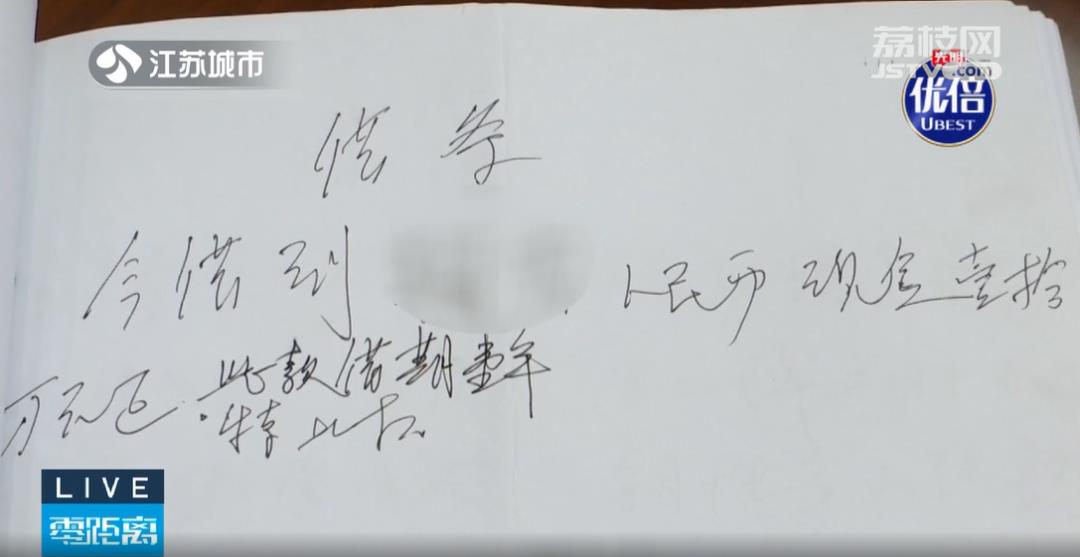 江苏城市
荔枝网
JSTV.com
光明
优倍
UBEST
借条
今借到 人民币 现金壹拾
万元正.此款借期壹年
特此据
LIVE
零距离